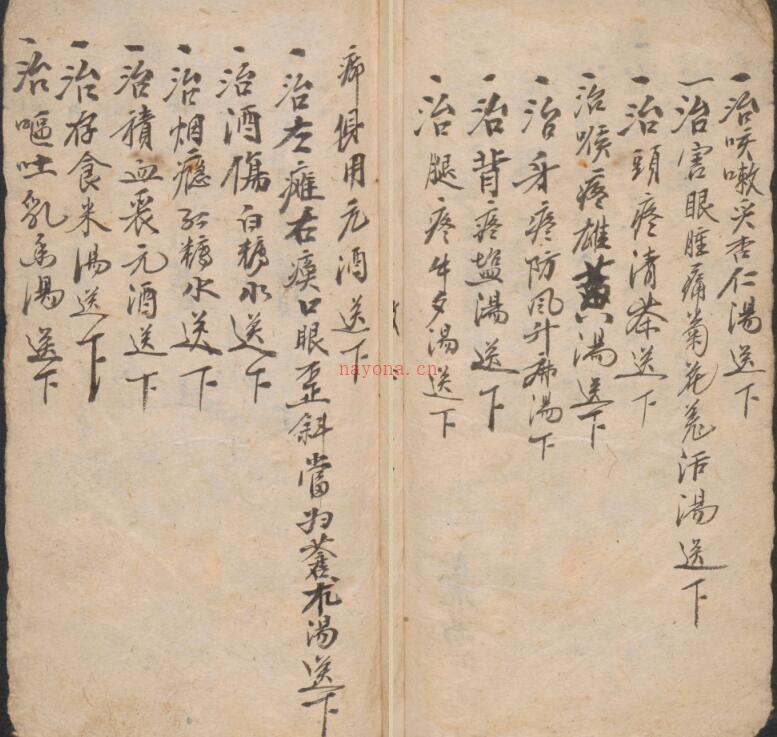 一治咳嗽炙杏仁湯送下
一治害眼腫痛菊花羌活湯送下
一治頭疼清茶送下
一治喉疼雄黄湯送下
一治身疼防风升麻湯下
一治背疼塩湯送下
一治腿疼牛夕湯送下
俱用元酒送下
一治左癱右瘓口眼歪斜當归蒼朮湯送下
一治酒傷白糖水送下
一治烟癮紅糖水送下
一治積血丧元酒送下
一治存食米湯送下
一治嘔吐乳香湯送下
nayona.cn